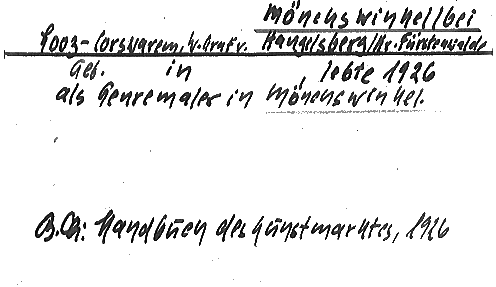 Mönchswinkel bei
Looz-Corswarem, W. Graf v. Hangelsberg/Kr. Fürstenwalde
Geb. in , lebte 1926
als Genremaler in Mönchswinkel.
B.Qu: Handbuch des Kunstmarktes, 1926